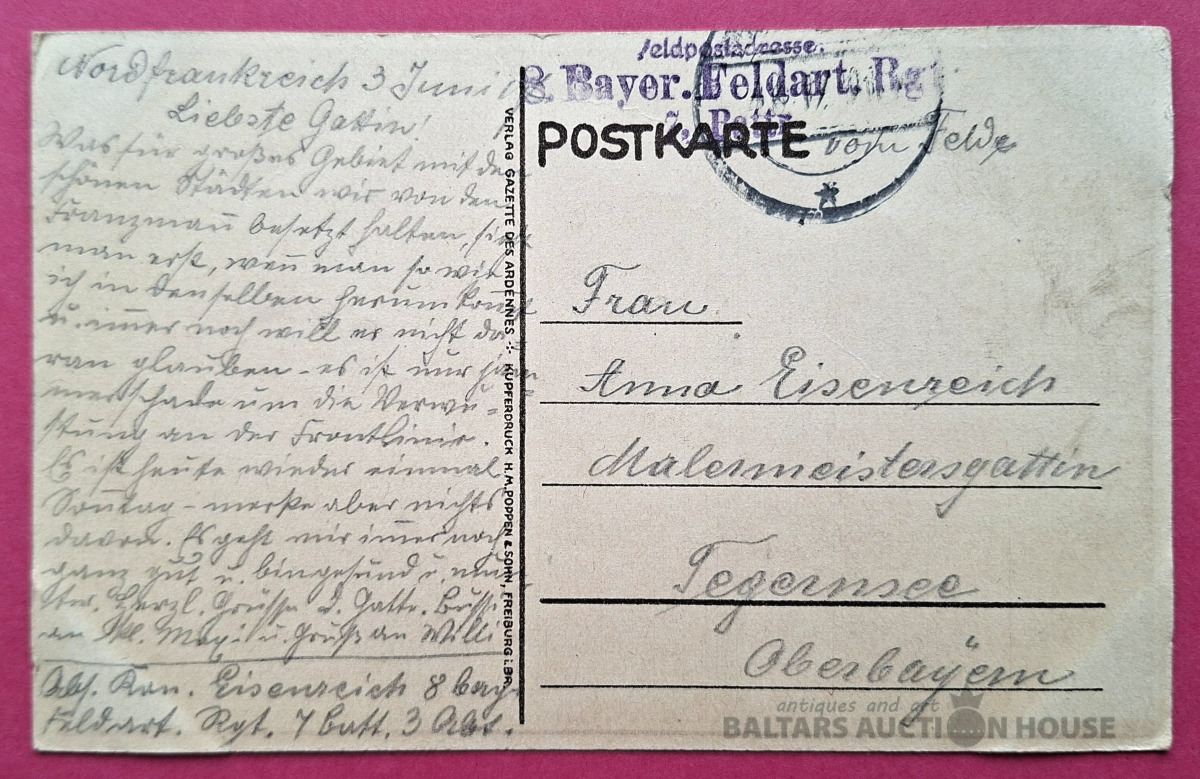 Nordfrankreich 3 Juni 18
Liebste Gattin!
Was für großes Gebiet mit den
schönen Städten wir von den
Franzman̄ besetzt halten, sieht
man erst, wen̄ man so wie
ich in denselben herumkom̄t
u. im̄er noch will er nicht da
ran glauben - es ist nur jam
merschade um die Verwü=
stung an der Frontlinie.
Es ist heute wieder einmal
Son̄tag - merke aber nichts
davon. Es geht mir im̄er noch
ganz gut u. bin gesund u. mun
ter. Herzl. Grüsse d. Gatte. Bussi
an Kl. Maxi u. Gruß an Willi
Abs. Kan. Eisenreich 8 bay.
Feldart. Rgt. 7 batt. 3 Abt.
VERLAG GAZETTE DES ARDENNES ∴ KUPFERDRUCK H.M. POPPEN & SOHN, FREIBURG i. BR.
Feldpostadresse:
8. Bayer. Feldart. Rgt
7. Battr.
POSTKARTE
vom Felde
Frau
Anna Eisenreich
Malermeistersgattin
Tegernsee
Oberbayern
antiques and art
BALTARS AUCTION HOUSE